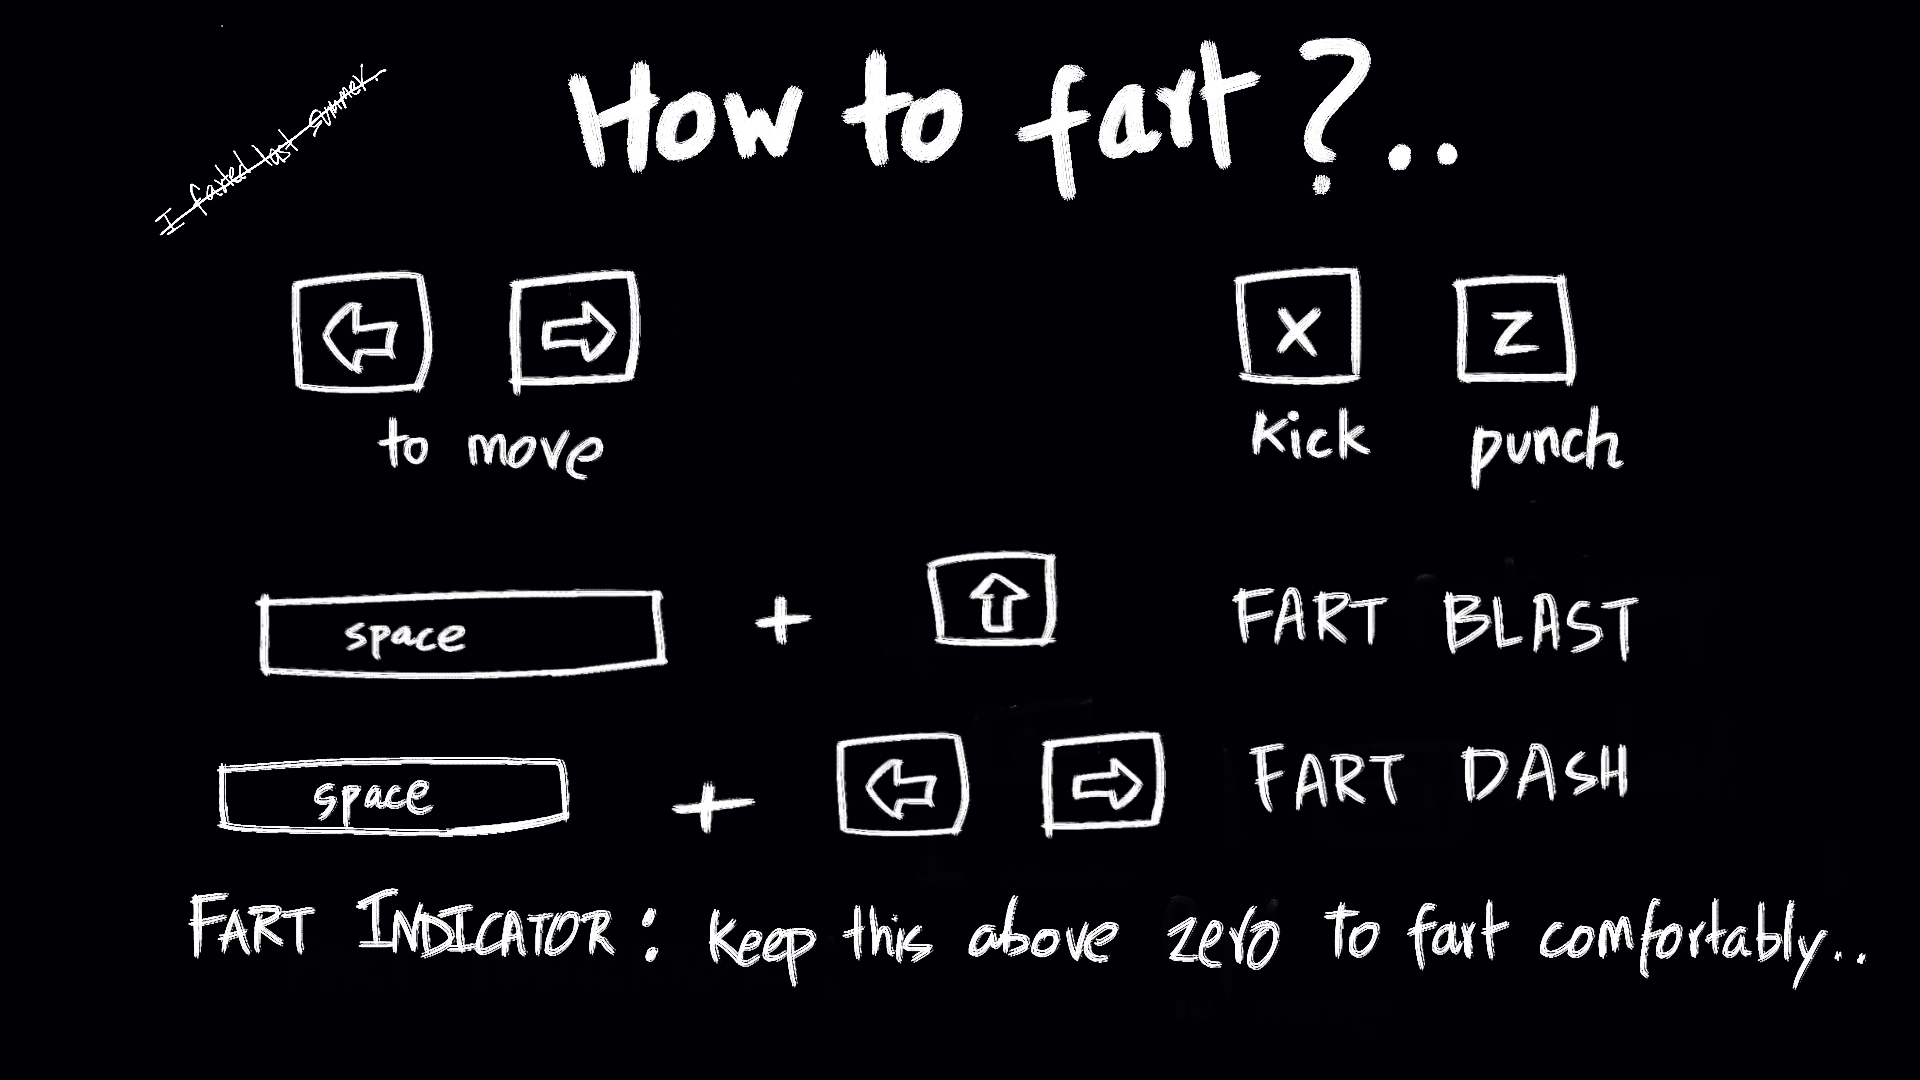 How to fart?..
I farted last summer.
X Z
to move
Kick punch
space + FART BLAST
space + FART DASH
FART INDICATOR: Keep this above zero To fart comfortably..